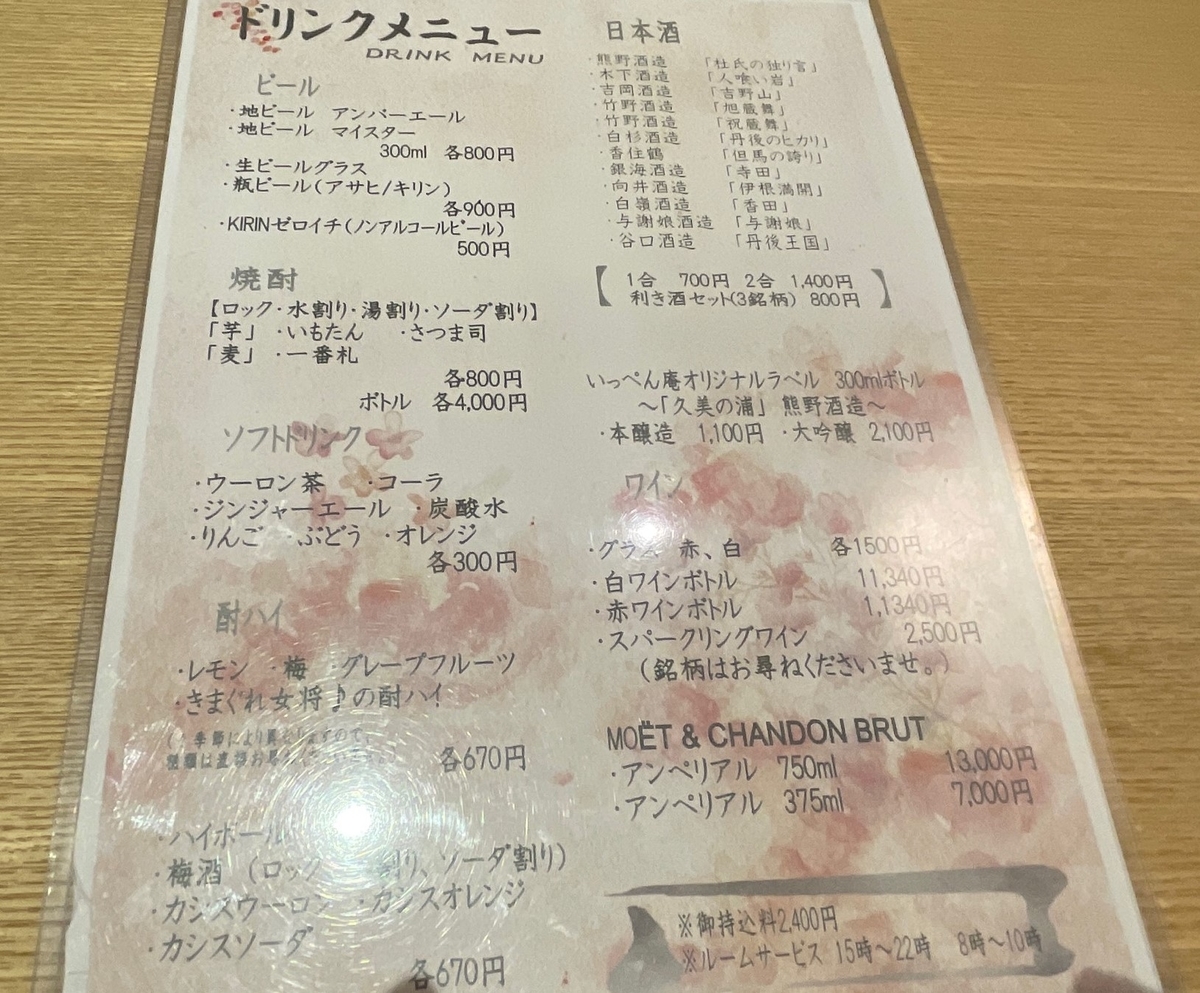 ドリンクメニュー
DRINK MENU
ビール
・地ビール アンバーエール
・地ビール マイスター
300ml 各800円
・生ビールグラス
・瓶ビール(アサヒ/キリン)
各900円
・KIRINゼロイチ(ノンアルコールビール)
500円
焼酎
【ロック・水割り・湯割り・ソーダ割り】
「芋」 ・いもたん ・さつま司
「麦」 ・一番札
各800円
ボトル 各4,000円
ソフトドリンク
・ウーロン茶 ・コーラ
・ジンジャーエール ・炭酸水
・りんご ・ぶどう ・オレンジ
各300円
酎ハイ
・レモン ・梅 ・グレープフルーツ
・きまぐれ女将♪の酎ハイ
季節により異なりますので、
種類は直接お尋ね
各670円
・ハイボール
・梅酒 (ロック 割り、ソーダ割り)
・カシスウーロン ・カシスオレンジ
・カシスソーダ
各670円
日本酒
・熊野酒造 「杜氏の独り言」
・木下酒造 「人喰い岩」
・吉岡酒造 「吉野山」
・竹野酒造 「旭蔵舞」
・竹野酒造 「祝蔵舞」
・白杉酒造 「丹後のヒカリ」
・香住鶴 「但馬の誇り」
・銀海酒造 「寺田」
・向井酒造 「伊根満開」
・白嶺酒造 「香田」
・与謝娘酒造 「与謝娘」
・谷口酒造 「丹後王国」
【 1合 700円 2合 1,400円
利き酒セット(3銘柄) 800円 】
いっぺん庵オリジナルラベル 300mlボトル
～「久美の浦」 熊野酒造～
・本醸造 1,100円 ・大吟醸 2,100円
ワイン
・グラス 赤、白 各1500円
・白ワインボトル 11,340円
・赤ワインボトル 1,1340円
・スパークリングワイン 2,500円
(銘柄はお尋ねくださいませ。)
MOËT & CHANDON BRUT
・アンペリアル 750ml 13,000円
・アンペリアル 375ml 7,000円
※御持込料2,400円
※ルームサービス 15時～22時 8時～10時